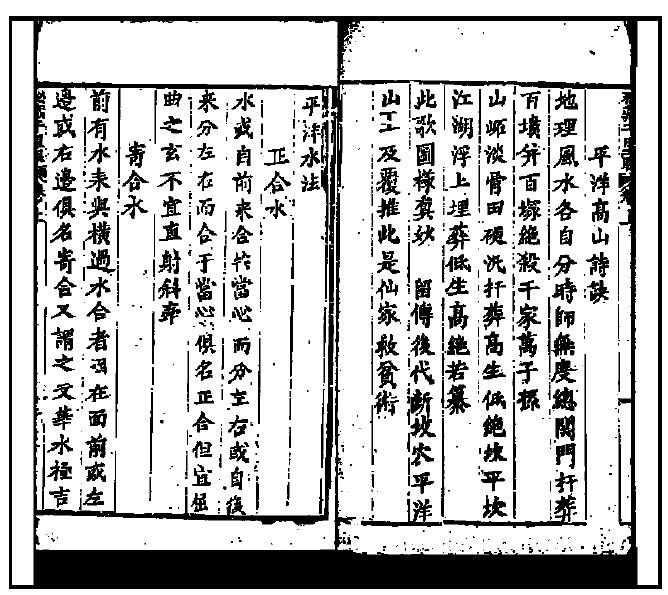 平洋高山詩訣
地理風水各自分時師無度總関門扞葬
百墳并百塚絶殺千家萬子孫
山崎淡骨田硬洗扞葬高生低絶坡平坎
江湖浮上埋葬低生高絶若
此歌圖樣 妙留傳後代断坡 平洋
山 及覆推此是仙家救貧術
平洋水法
正合水
水或自前來合於當心而分左右或自後
來分左右而合于當心俱名正合但宜屈
曲之玄不宜直射斜奔
寄合水
前有水来與橫過水合者或在面前或左
邊或右邊俱名寄合又謂之文華水極吉